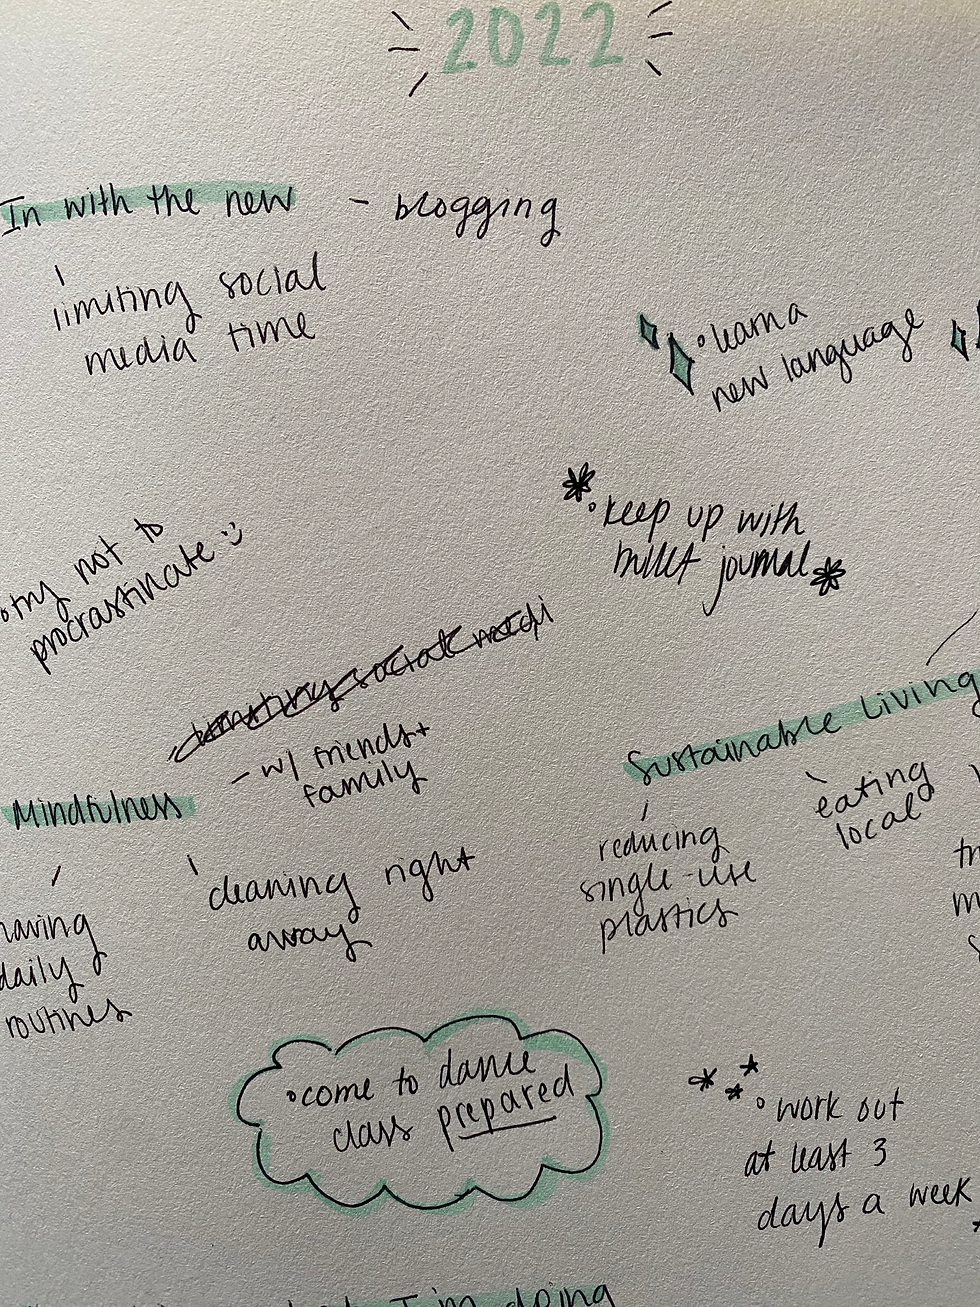 2022
In with the new - blogging
limiting social
media time
learn a
new language
keep up with
bullet journal
try not to
procrastinate :)
- w/ friends +
family
Mindfulness
Sustainable Living
eating
local
reducing
single-use
plastics
cleaning right
away
having
daily
routines
come to dance
class prepared
work out
at least 3
days a week
I'm doing